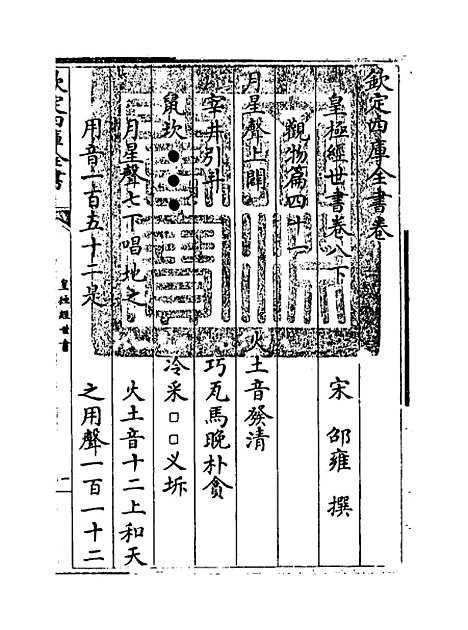 欽定四庫全書卷
皇極經世書卷八下
宋 邵雍 撰
觀物篇四十一
月星聲上闢
火土音發清
宰井引斗
巧瓦馬晚朴貪
鼠坎●●●
冷采□□义坼
月星聲七下唱地之
火土音十二上和天
用音一百五十二是
之用聲一百一十二
欽定四庫全書
皇極經世書
一